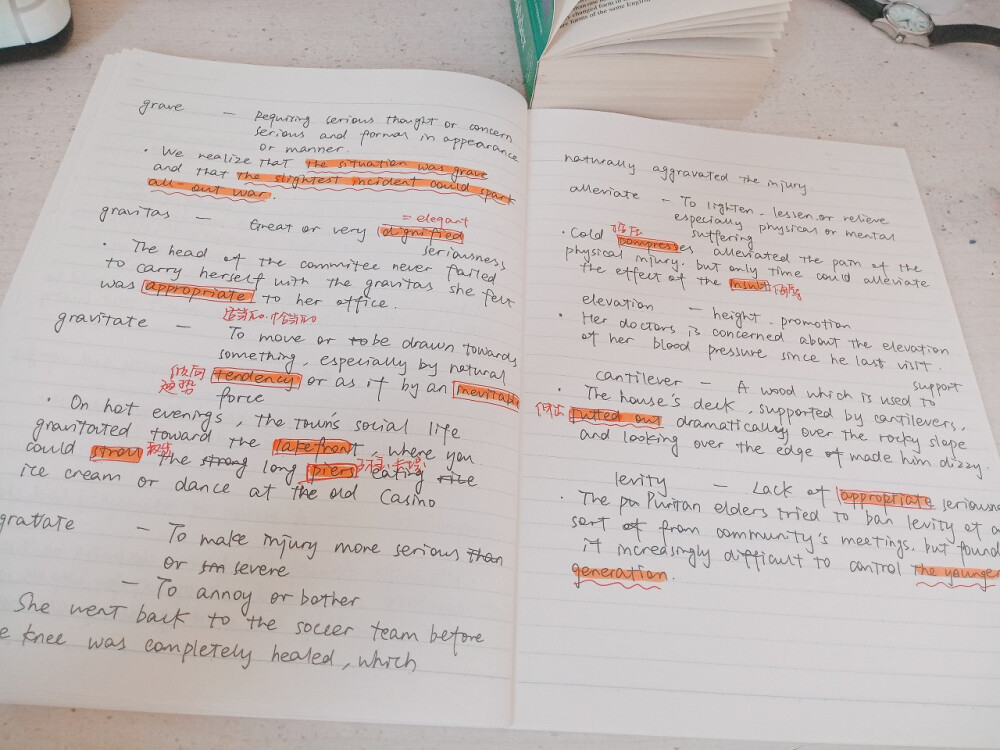 grave — Requiring serious thought or concern
serious and formal in appearance
or manner.
· We realize that the situation was grave
and that the slightest incident could spark
all-out war.
= elegant
gravitas — Great or very dignified
seriousness
· The head of the commitee never failed
to carry herself with the gravitas she felt
was appropriate to her office.
适当的.恰当的
gravitate —
To move or to be drawn towards
something, especially by natural
倾向 tendency or as if by an inevitabl
趋势
force
· On hot evenings, the town's social life
gravitated toward the lakefront, where you
could stroll the strong long piers eating
ice cream or dance at the old Casino
— To make injury more serious than
or severe
— To annoy or bother
She went back to the soccer team before
e knee was completely healed, which
changed form in
forms of the same English
naturally aggravated the injury
alleviate — To lighten. lessen. or relieve
especially physical or mental
suffering
· Cold compresses alleviated the pain of the
physical injury. but only time could alleviate
the effect of the insult
elevation — height. promotion
· Her doctors is concerned about the elevation
of her blood pressure since he last visit.
cantilever — A wood which is used to support
· The house's deck, supported by cantilevers,
jutted out dramatically over the rocky slope
and looking over the edge of made him dizzy.
levity — Lack of appropriate seriousne
· The pu Puritan elders tried to ban levity of a
sort of from community's meetings. but found
it increasingly difficult to control the younger
generation.